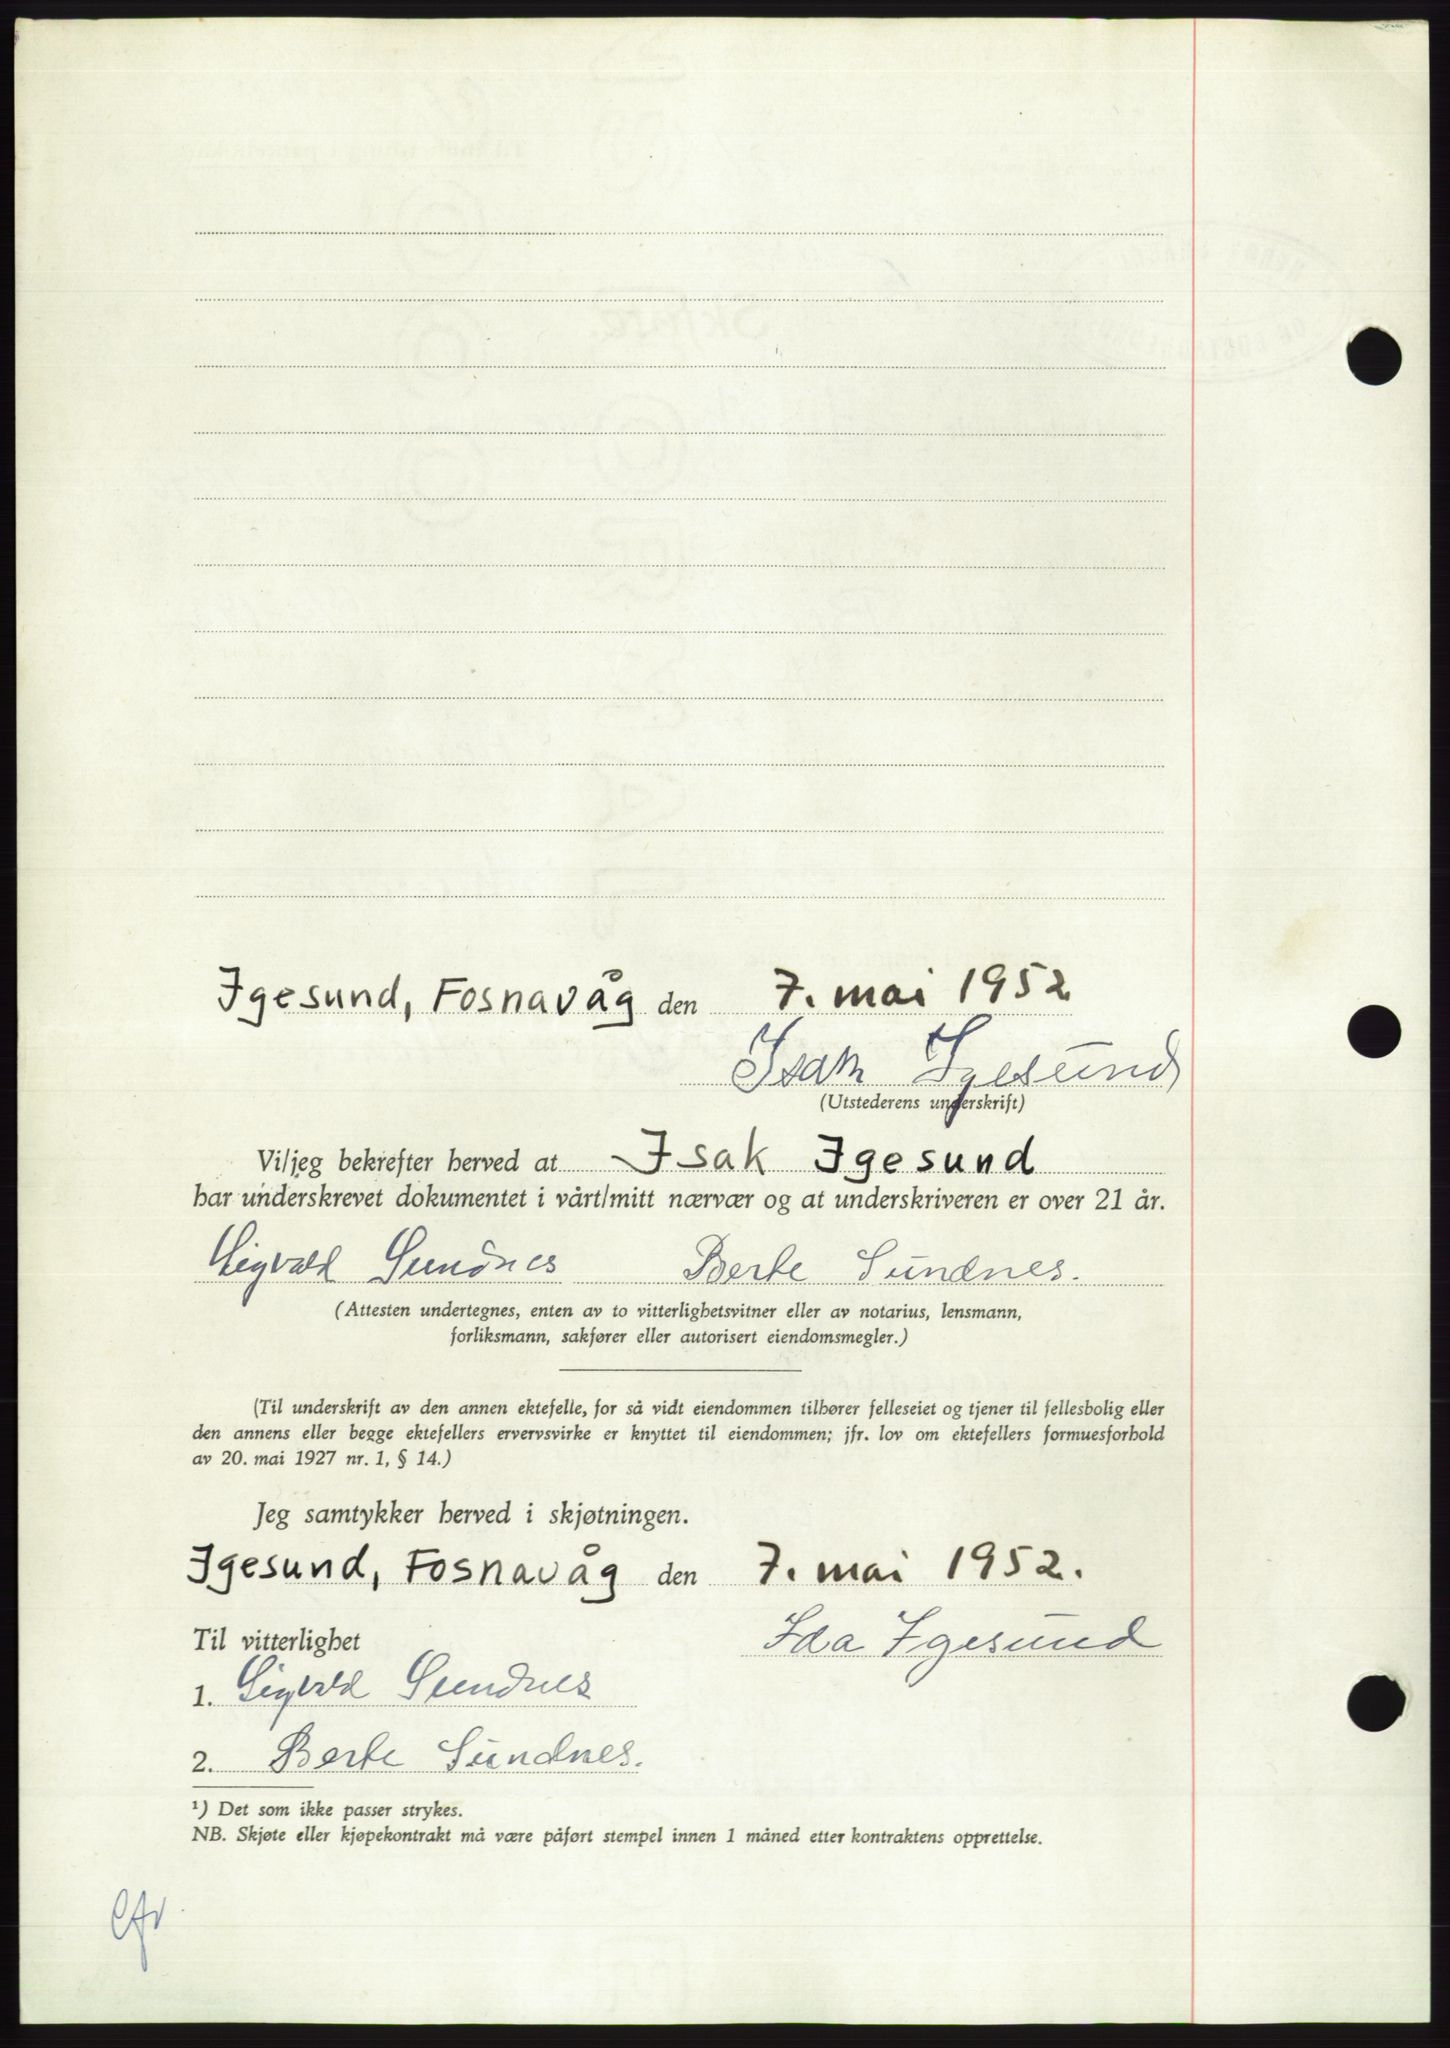 Igesund, Fosnavåg den 7. mai 1952
Isak Igesund
(Utstederens underskrift)
Vi/jeg bekrefter herved at Isak Igesund
har underskrevet dokumentet i vårt/mitt nærvær og at underskriveren er over 21 år.
Sigvald Sundnes Berte Sundnes.
(Attesten undertegnes, enten av to vitterlighetsvitner eller av notarius, lensmann,
forliksmann, sakfører eller autorisert eiendomsmegler.)
(Til underskrift av den annen ektefelle, for så vidt eiendommen tilhører felleseiet og tjener til fellesbolig eller
den annens eller begge ektefellers ervervsvirke er knyttet til eiendommen; jfr. lov om ektefellers formuesforhold
av 20. mai 1927 nr. 1, § 14.)
Jeg samtykker herved i skjøtningen.
Igesund, Fosnavåg den 7. mai 1952.
Ida Igesund
Til vitterlighet
1. Sigvald Sundnes
2. Berte Sundnes.
¹) Det som ikke passer strykes.
NB. Skjøte eller kjøpekontrakt må være påført stempel innen 1 måned etter kontraktens opprettelse.